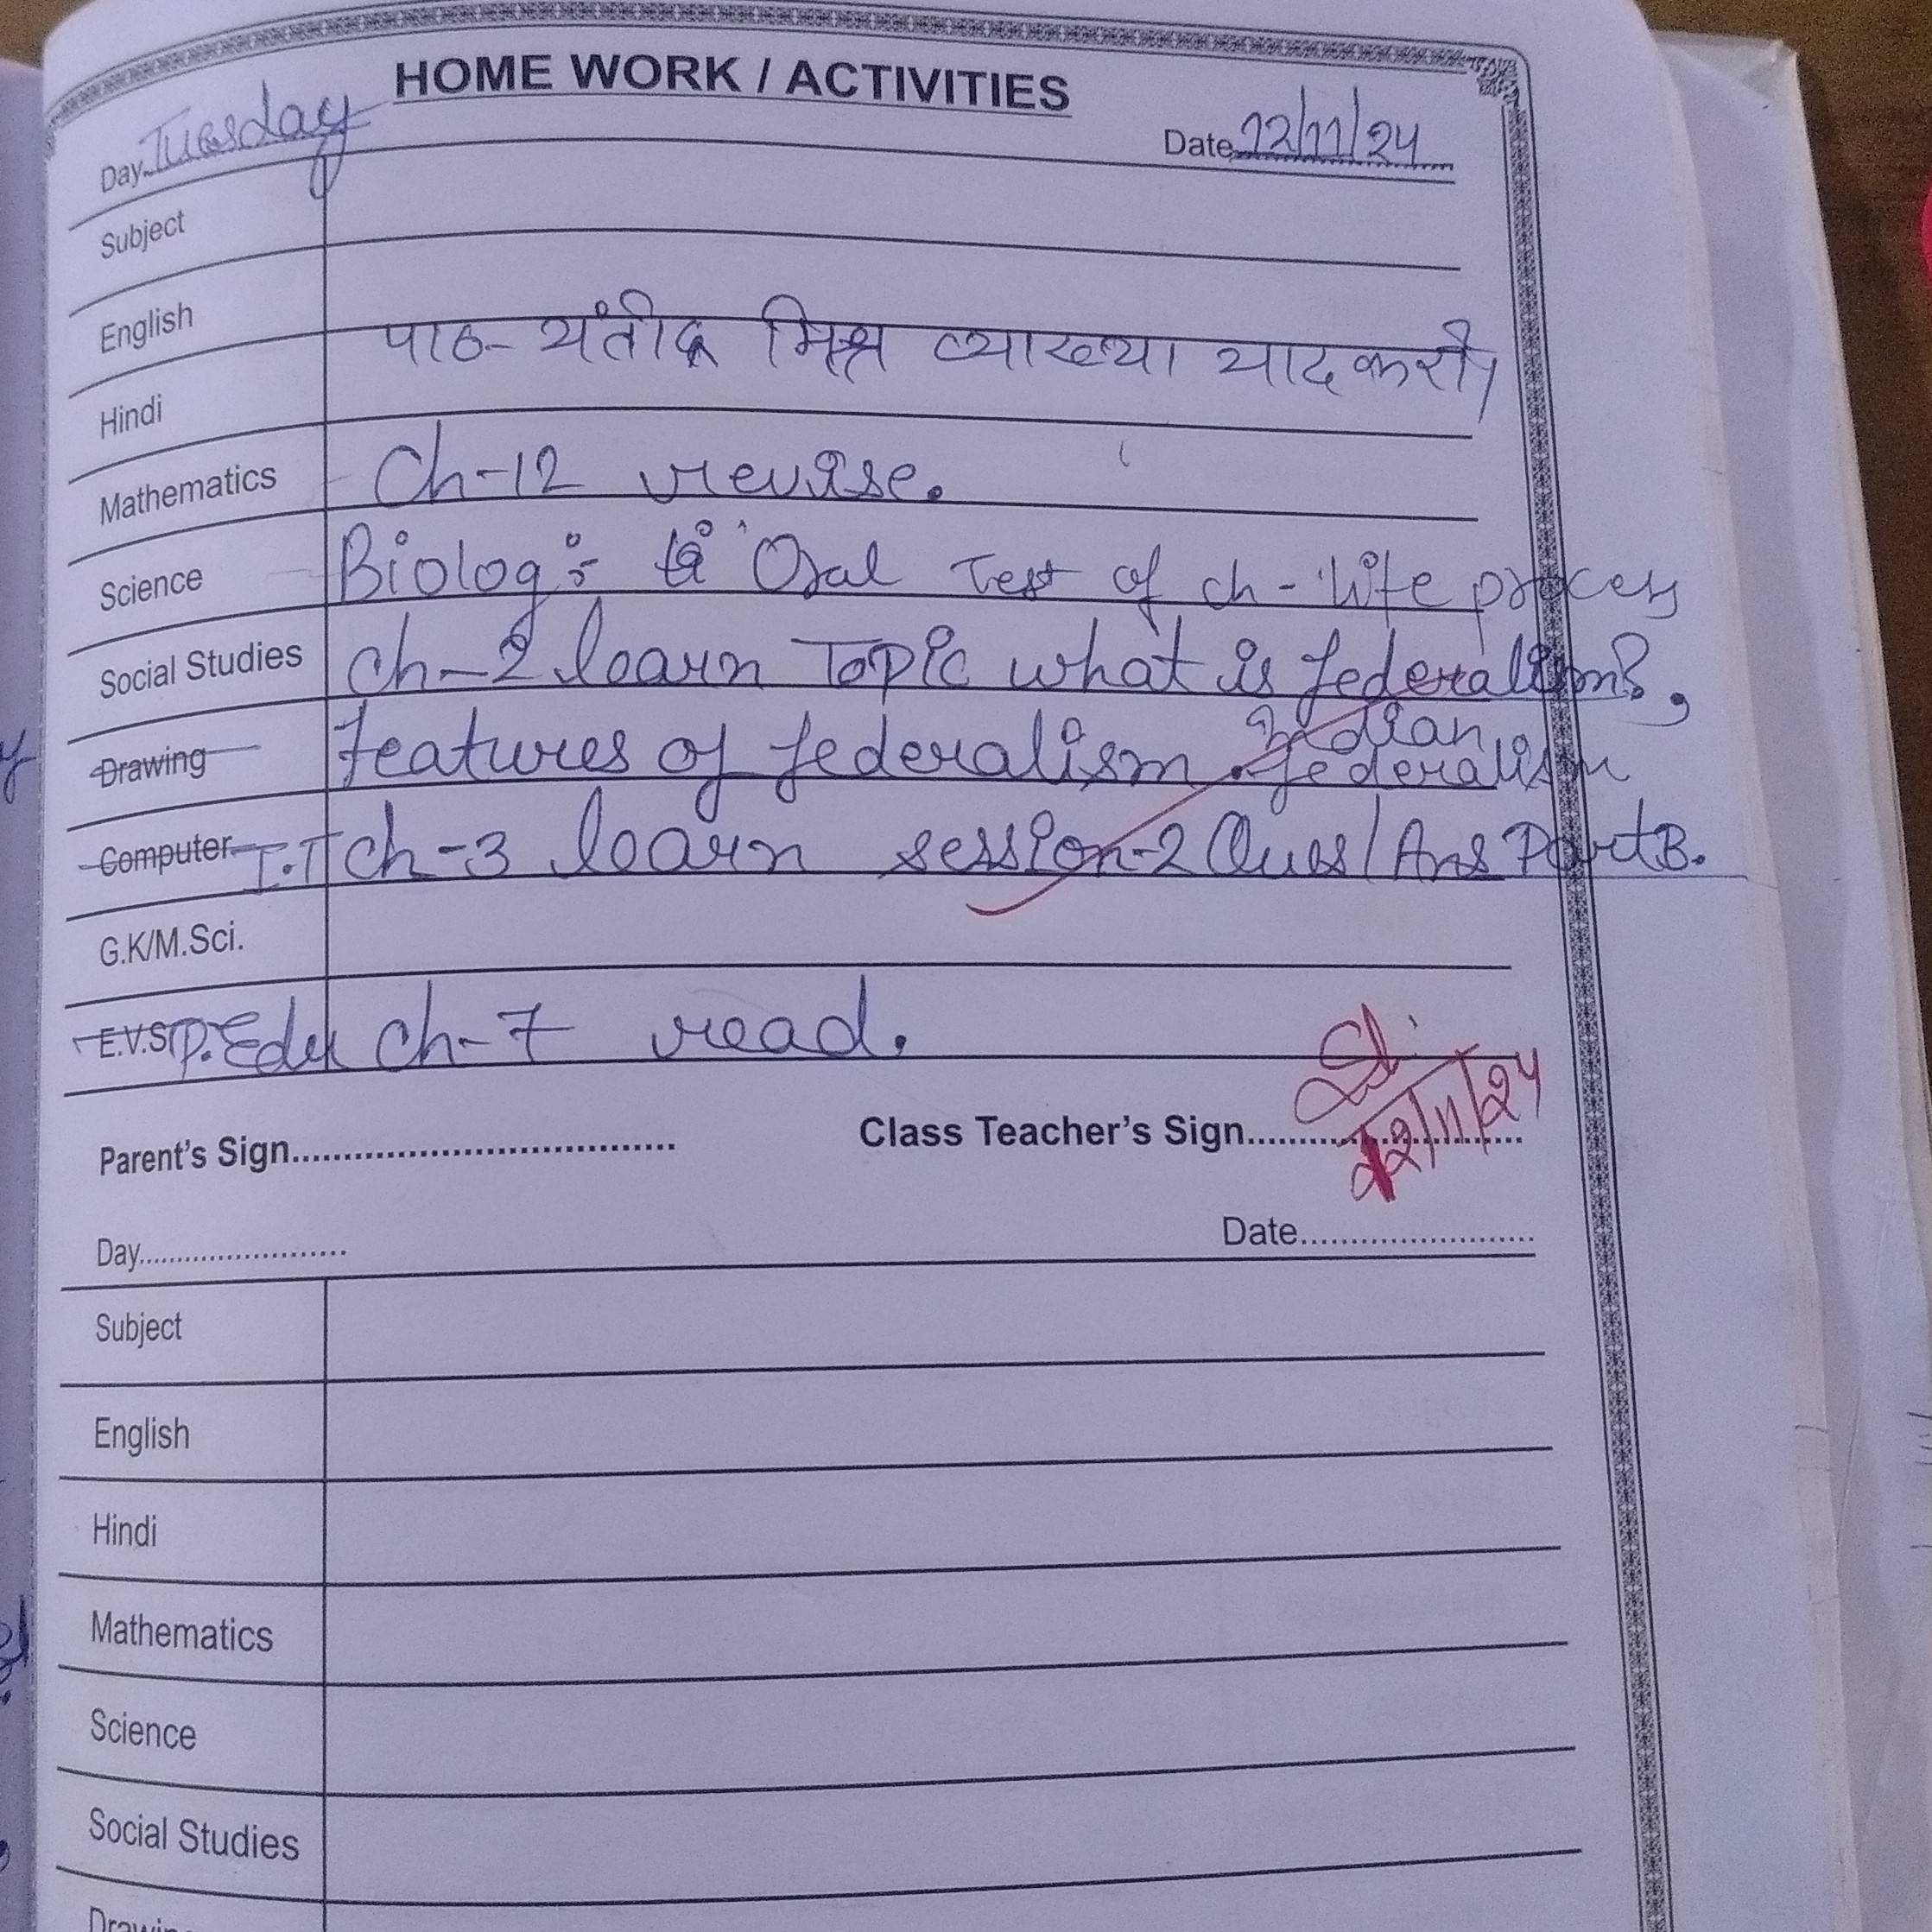 HOME WORK / ACTIVITIES
Day Tuesday Date 12/11/24
Subject
English
Hindi पाठ- यंतीद्र मिश्र व्याख्या याद करो।
Mathematics Ch-12 revise.
Science Biolog:- Oral Test of ch- life process
Social Studies ch-2 learn Topic what is federalism?,
Drawing Features of federalism. Indian federalism
Computer I.T ch-3 learn session-2 Ques/Ans Part B.
G.K/M.Sci.
E.V.S P.Edu ch-7 read.
Parent's Sign.................................... Class Teacher's Sign...........................
12/11/24
Day....................... Date.......................
Subject
English
Hindi
Mathematics
Science
Social Studies